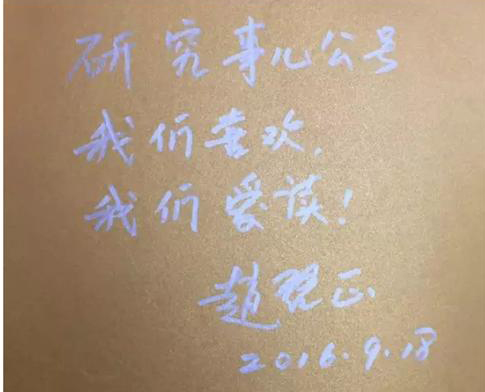 研究事儿公号
我们喜欢，
我们爱读！
赵正
2016.9.18